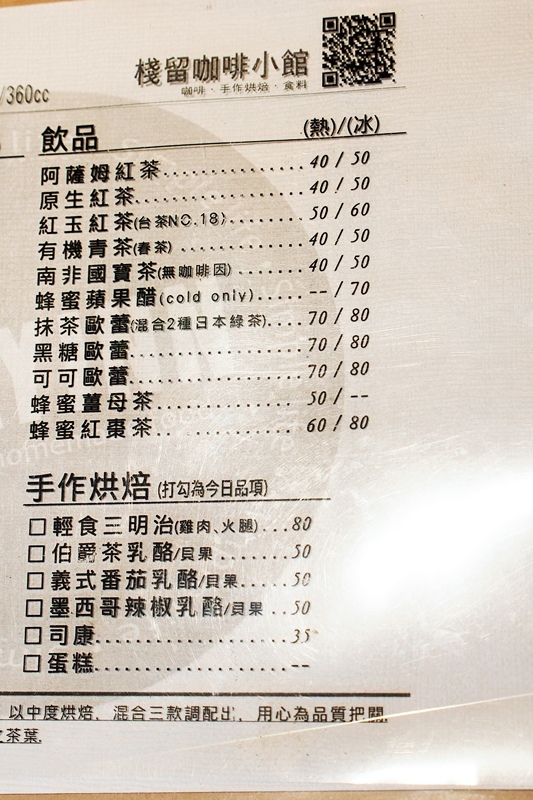 棧留咖啡小館
咖啡．手作烘焙．食料
/360cc
飲品 (熱)/(冰)
阿薩姆紅茶 40 / 50
原生紅茶 40 / 50
紅玉紅茶(台茶NO.18) 50 / 60
有機青茶(春茶) 40 / 50
南非國寶茶(無咖啡因) 40 / 50
蜂蜜蘋果醋(cold only) -- / 70
抹茶歐蕾(混合2種日本綠茶) 70 / 80
黑糖歐蕾 70 / 80
可可歐蕾 70 / 80
蜂蜜薑母茶 50 / --
蜂蜜紅棗茶 60 / 80
手作烘焙 (打勾為今日品項)
□ 輕食三明治(雞肉、火腿) 80
□ 伯爵茶乳酪/貝果 50
□ 義式番茄乳酪/貝果 50
□ 墨西哥辣椒乳酪/貝果 50
□ 司康 35
□ 蛋糕 --
以中度烘焙，混合三款調配出，用心為品質把關
茶葉.